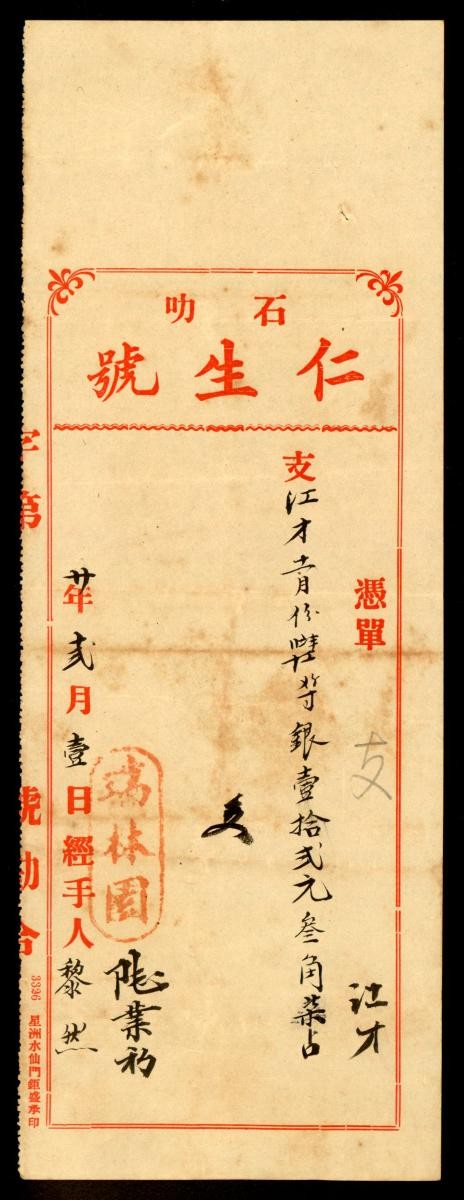 石叻
仁生號
憑單
支
江才
支江才 月份 銀壹拾弍元叁角柒占
支
瑞林園
業初
廿年弍月壹日經手人黎然
字第 號勘合
3396 星洲水仙門鉅盛承印